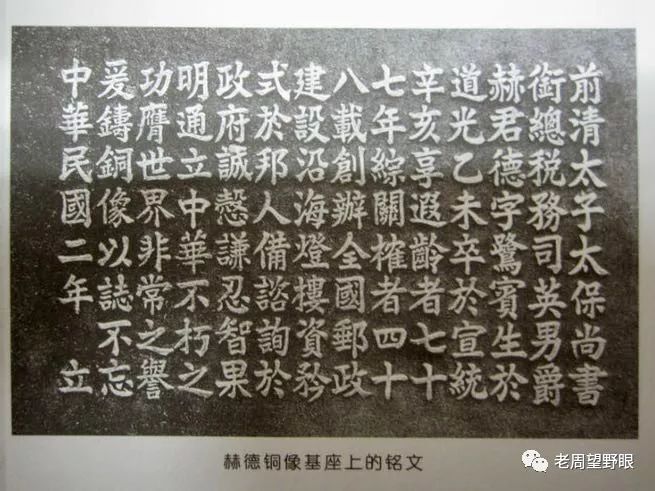 前清太子太保尚書
銜總税務司英男爵
赫君德字鷺賓生於
道光乙未卒於宣統
辛亥享遐齡者七十
七年綜關榷者四十
八載創辦全國郵政
建設沿海燈樓資矜
式於邦人備諮詢於
政府誠愨謙忍智果
明通立中華不朽之
功膺世界非常之譽
爰鑄銅像以誌不忘
中華民國二年 立
赫德铜像基座上的铭文
老周望野眼